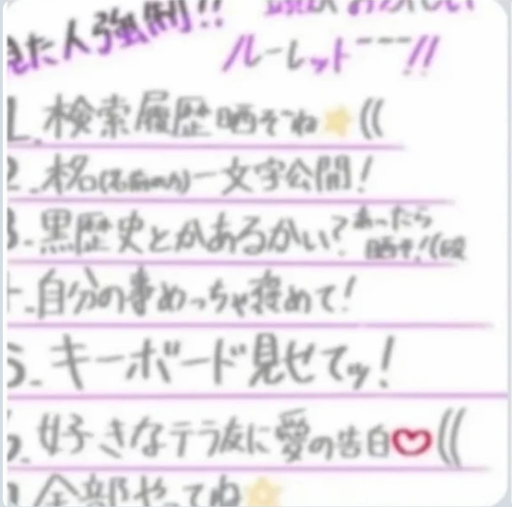 見た人強制!!
頭がおかしい
ルーレットーーー!!
1.検索履歴晒そうね((
2.本名(名前のみ)一文字公開!
3.黒歴史とかあるかい?あったら
晒そ!(殴
4.自分の事めっちゃ褒めて!
5.キーボード見せてッ!
6.好きなテラ友に愛の告白♡((
全部やってね